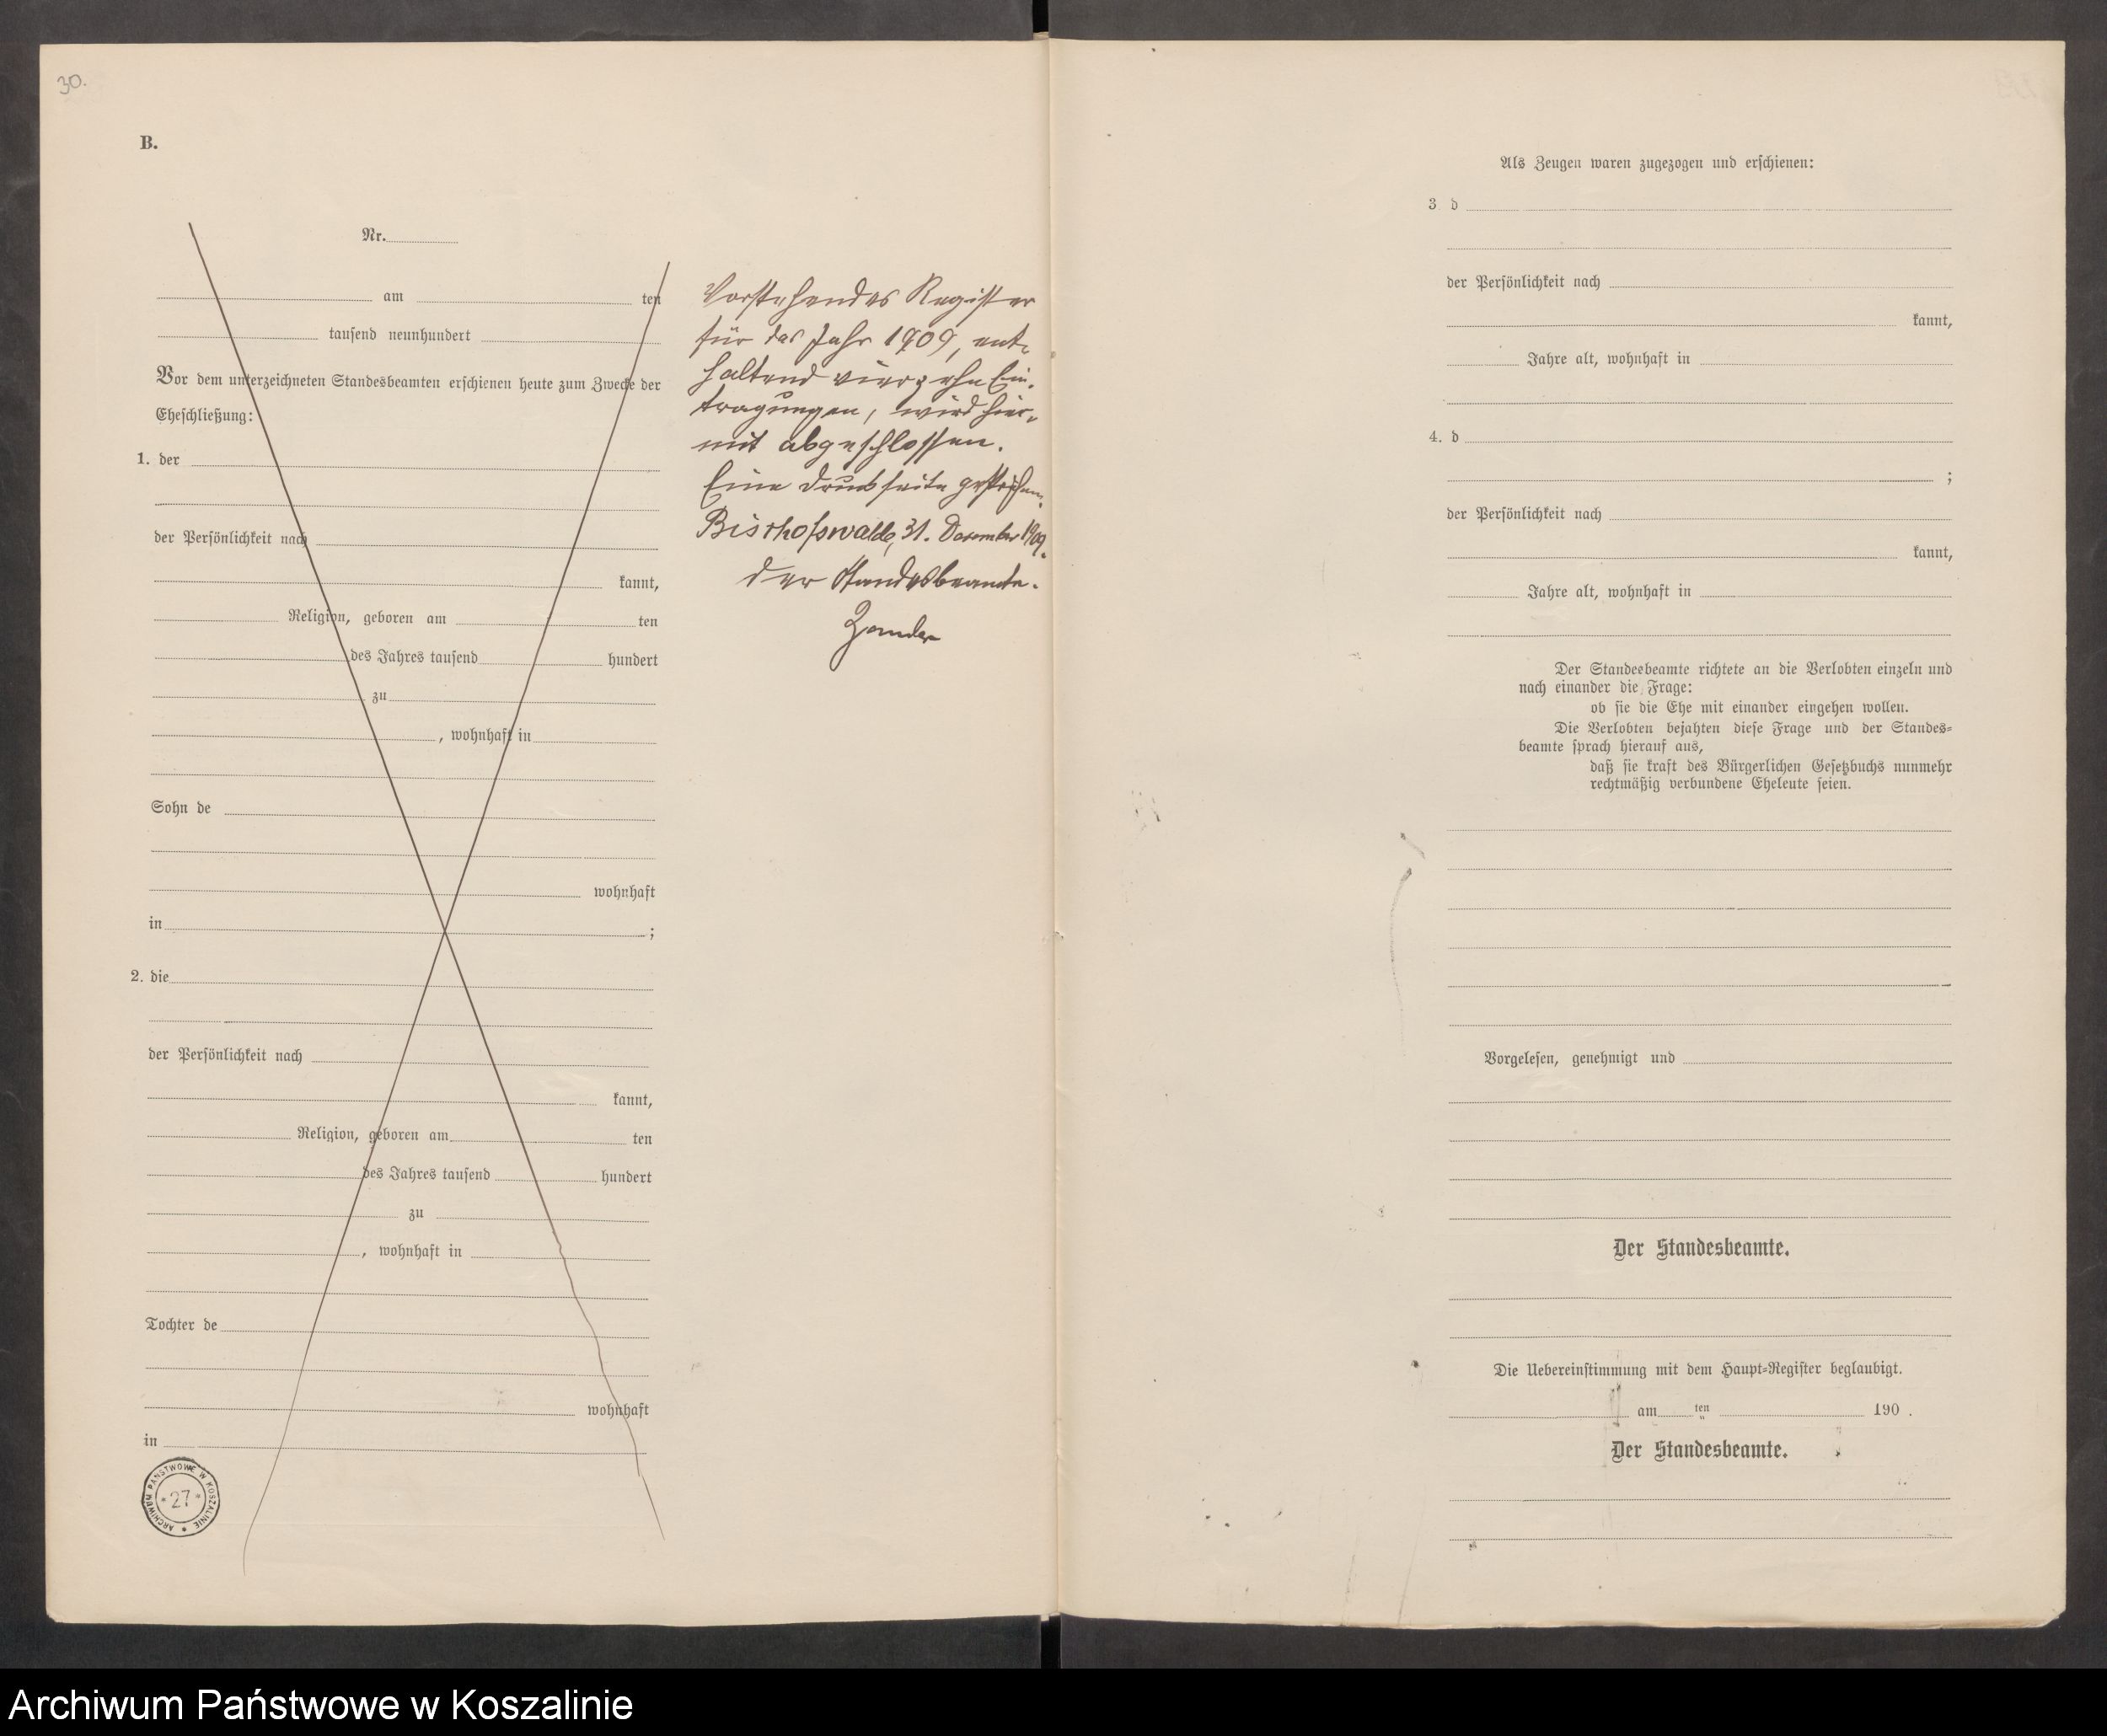 30.
B.
Nr.
am ten
tausend neunhundert
Vor dem unterzeichneten Standesbeamten erschienen heute zum Zwecke der
Eheschließung:
1. der
der Persönlichkeit nach
kannt,
Religion, geboren am ten
des Jahres tausend hundert
zu
, wohnhaft in
Sohn de
wohnhaft
in ;
2. die
der Persönlichkeit nach
kannt,
Religion, geboren am ten
des Jahres tausend hundert
zu
, wohnhaft in
Tochter de
wohnhaft
in
ARCHIWUM PAŃSTWOWE W KOSZALINIE
* 27 *
Vorstehendes Register
für das Jahr 1909, ent-
haltend vierzehn Ein-
tragungen, wird hier-
mit abgeschlossen.
Eine Druckseite gestrichen.
Bischofswalde, 31. Dezember 1909.
Der Standesbeamte.
Zander
Als Zeugen waren zugezogen und erschienen:
3 d
der Persönlichkeit nach
kannt,
Jahre alt, wohnhaft in
4. d
;
der Persönlichkeit nach
kannt,
Jahre alt, wohnhaft in
Der Standesbeamte richtete an die Verlobten einzeln und
nach einander die Frage:
ob sie die Ehe mit einander eingehen wollen.
Die Verlobten bejahten diese Frage und der Standes-
beamte sprach hierauf aus,
daß sie kraft des Bürgerlichen Gesetzbuchs nunmehr
rechtmäßig verbundene Eheleute seien.
Vorgelesen, genehmigt und
Der Standesbeamte.
Die Uebereinstimmung mit dem Haupt-Register beglaubigt.
am ten 190 .
Der Standesbeamte.
Archiwum Państwowe w Koszalinie